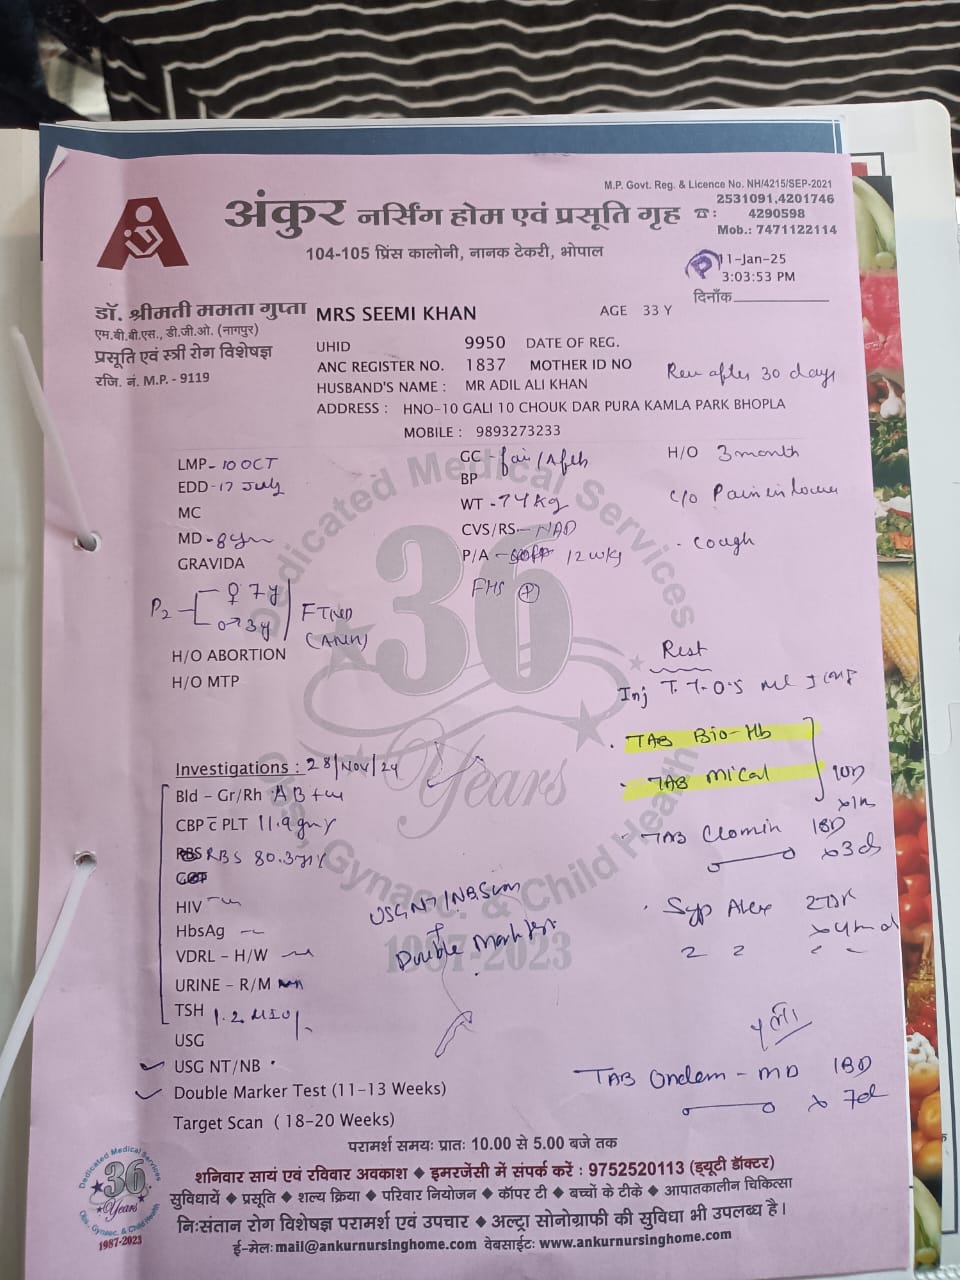 M.P. Govt. Reg. & Licence No. NH/4215/SEP-2021
अंकुर नर्सिंग होम एवं प्रसूति गृह ☎ : 2531091,4201746
4290598
Mob.: 7471122114
104-105 प्रिंस कालोनी, नानक टेकरी, भोपाल
P 11-Jan-25
3:03:53 PM
दिनाँक
डॉ. श्रीमती ममता गुप्ता
एम.बी.बी.एस., डी.जी.ओ. (नागपुर)
प्रसूति एवं स्त्री रोग विशेषज्ञ
रजि. नं. M.P. - 9119
MRS SEEMI KHAN AGE 33 Y
UHID 9950 DATE OF REG.
ANC REGISTER NO. 1837 MOTHER ID NO
HUSBAND'S NAME : MR ADIL ALI KHAN
ADDRESS : HNO-10 GALI 10 CHOUK DAR PURA KAMLA PARK BHOPLA
MOBILE : 9893273233
Rev after 30 days
LMP- 10 OCT
EDD- 17 July
MC
MD - 8yrs
GRAVIDA
GC - fair
BP
WT - 74 kg
CVS/RS - NAD
P/A - 12 wks
FHS +
H/O 3 month
c/o Pain in lower
- cough
P2 ♀ 7y
♂ 3y
FTND
H/O ABORTION
H/O MTP
Rest
Inj T.T. 0.5 ml
TAB Bio-Hb
TAB Mical
10D
TAB Clomin 1BD
x3d
Syp Alex 2TDS
2 2
Investigations : 28/Nov/24
Bld - Gr/Rh AB +ve
CBP c̄ PLT 11.9 gm%
RBS 80.3
HIV -ve
HbsAg
VDRL - H/W
URINE - R/M
TSH 1.2
USG
USG NT/NB
Double Marker Test (11-13 Weeks)
Target Scan ( 18-20 Weeks)
USG NT/NB Scan
+
Double Marker
TAB Ondem - MD 1BD
x 7d
Dedicated Medical Services
36
Years
Obs, Gynaec. & Child Health
1987-2023
परामर्श समयः प्रातः 10.00 से 5.00 बजे तक
शनिवार सायं एवं रविवार अवकाश ◆ इमरजेंसी में संपर्क करें : 9752520113 (ड्यूटी डॉक्टर)
सुविधायें ◆ प्रसूति ◆ शल्य क्रिया ◆ परिवार नियोजन ◆ कॉपर टी ◆ बच्चों के टीके ◆ आपातकालीन चिकित्सा
निःसंतान रोग विशेषज्ञ परामर्श एवं उपचार ◆ अल्ट्रा सोनोग्राफी की सुविधा भी उपलब्ध है।
ई-मेलः mail@ankurnursinghome.com वेबसाईटः www.ankurnursinghome.com
Dedicated Medical Services
36
Years
Obs, Gynaec. & Child Health
1987-2023